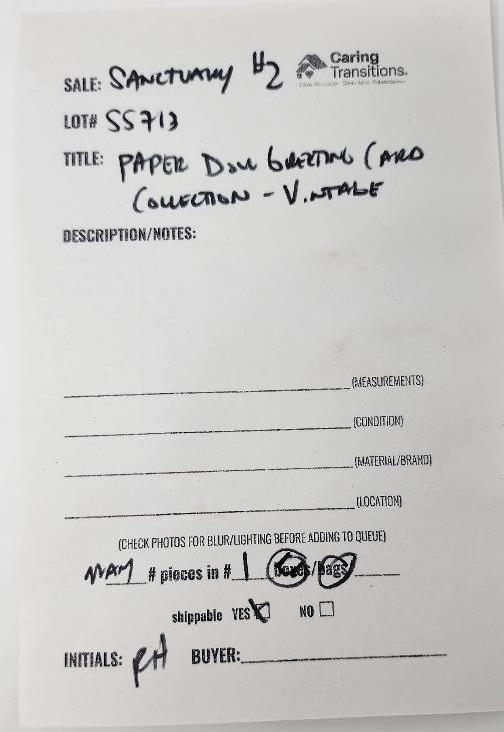 SALE: SANCTUARY #2 Caring Transitions.
LOT# SS713
TITLE: PAPER DOLL GREETING CARD
COLLECTION - VINTAGE
DESCRIPTION/NOTES:
(MEASUREMENTS)
(CONDITION)
(MATERIAL/BRAND)
(LOCATION)
(CHECK PHOTOS FOR BLUR/LIGHTING BEFORE ADDING TO QUEUE)
MANY # pieces in # 1 boxes/bags
shippable YES NO
INITIALS: RH BUYER: